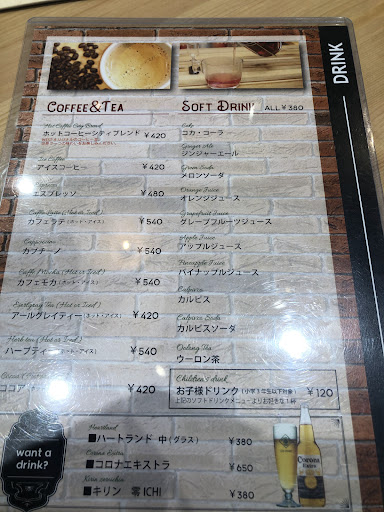 DRINK
COFFEE&TEA
Hot Coffee City Blend
ホットコーヒーシティブレンド ¥420
Ice Coffee
アイスコーヒー ¥420
エスプレッソ ¥480
Caffe Latte (Hot or Iced)
カフェラテ (ホット・アイス) ¥540
Cappuccino
カプチーノ ¥540
Caffe Mocha (Hot or Iced)
カフェモカ (ホット・アイス) ¥540
Earlgray Tea (Hot or Iced)
アールグレイティー (ホット・アイス) ¥420
Herb tea (Hot or Iced)
ハーブティー (ホット・アイス) ¥540
Cocoa
ココア ¥420
SOFT DRINK ALL ¥380
Coke
コカ・コーラ
Ginger Ale
ジンジャーエール
Green Soda
メロンソーダ
Orange Juice
オレンジジュース
Grapefruit Juice
グレープフルーツジュース
Apple Juice
アップルジュース
Pineapple Juice
パイナップルジュース
Calpico
カルピス
Calpico Soda
カルピスソーダ
Oolong Tea
ウーロン茶
Children's drink
お子様ドリンク (小学1年生以下対象) ¥120
上記のソフトドリンクメニューよりお好きな1杯
want a
drink?
Heartland
■ハートランド 中(グラス) ¥380
Corona Extra
■コロナエキストラ ¥650
Kirin zeroichi
■キリン 零ICHI ¥380
Corona
Extra